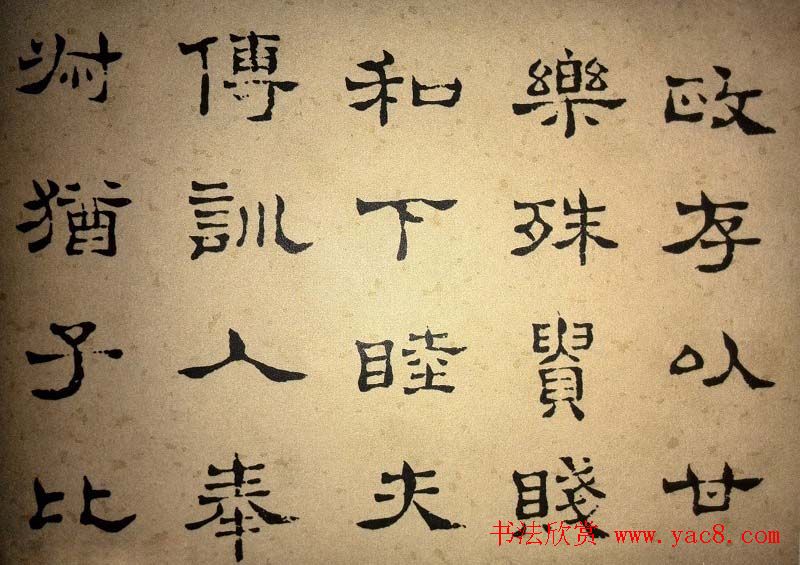 政存以甘
樂殊貴賤
和下睦夫
傅訓入奉
叔猶子比
书法欣赏 www.yac8.com